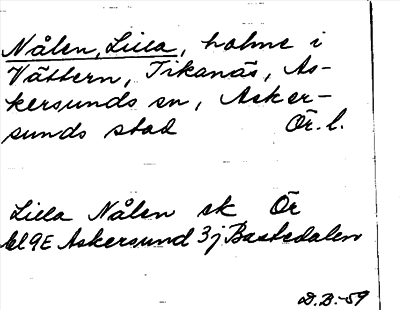 Nålen, Lilla, holme i
Vättern, Tikanäs, As-
kersunds sn, Asker-
sunds stad Ör. l.
Lilla Nålen sk Ör
bl 9E Askersund 3j Bastedalen
D.B.-59